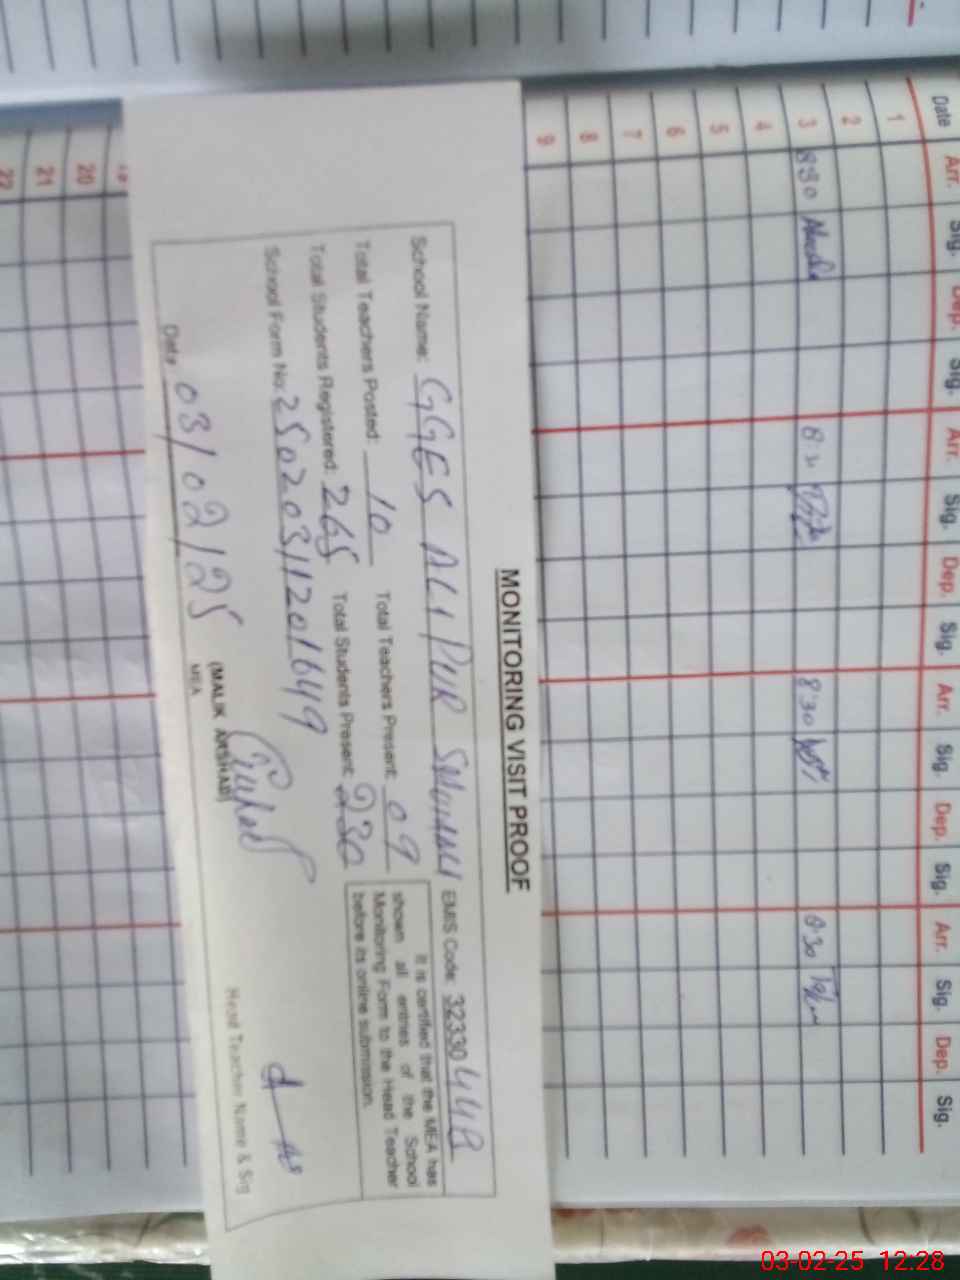 Date Arr. Sig. Dep. Sig. Arr. Sig. Dep. Sig. Arr. Sig. Dep. Sig. Arr. Sig. Dep. Sig.
1
2
3 8:30 8:30 8:30
4
5
6
7
8
9
MONITORING VISIT PROOF
School Name: GGES ALI PUR EMIS Code: 32330448
Total Teachers Posted: 10 Total Teachers Present: 09
Total Students Registered: 265 Total Students Present: 230
It is certified that the MEA has
shown all entries of the School
Monitoring Form to the Head Teacher
before its online submission.
School Form No: 250203/1201649
Date 03/02/25
(MALIK ARSHAD)
MEA
Head Teacher Name & Sig
20
21
22
03-02-25 12:28